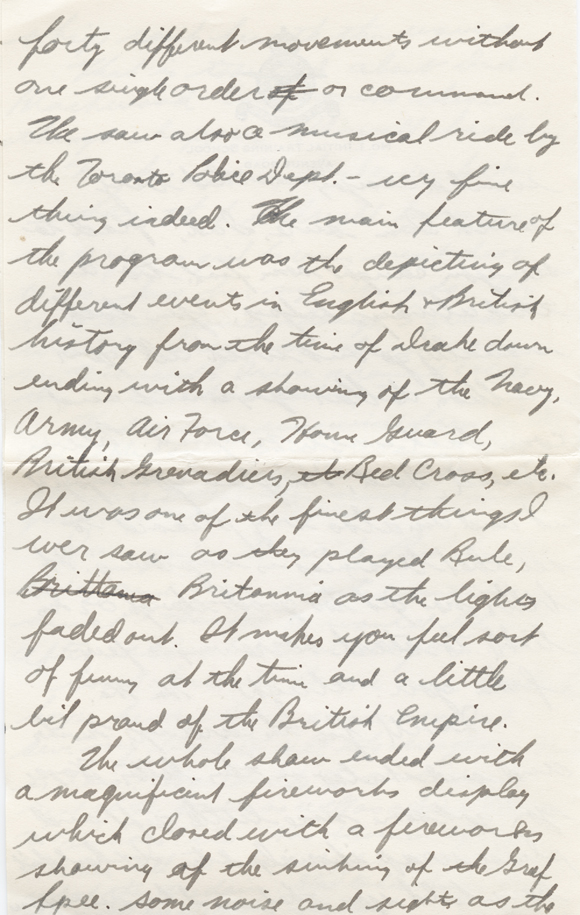 forty different movements without
one single order of or command.
We saw also a musical ride by
the Toronto Police Dept. - very fine
thing indeed. The main feature of
the program was the depicting of
different events in English & British
history from the time of Drake down
ending with a showing of the Navy,
Army, Air Force, Home Guard,
British Grenadiers, et Red Cross, etc.
It was one of the finest things I
ever saw as they played Rule,
Brittania Britannia as the lights
faded out. It makes you feel sort
of funny at the time and a little
bit proud of the British Empire.
The whole show ended with
a magnificent fireworks display
which closed with a fireworks
showing of the sinking of the Graf
Spee. some noise and sights as the